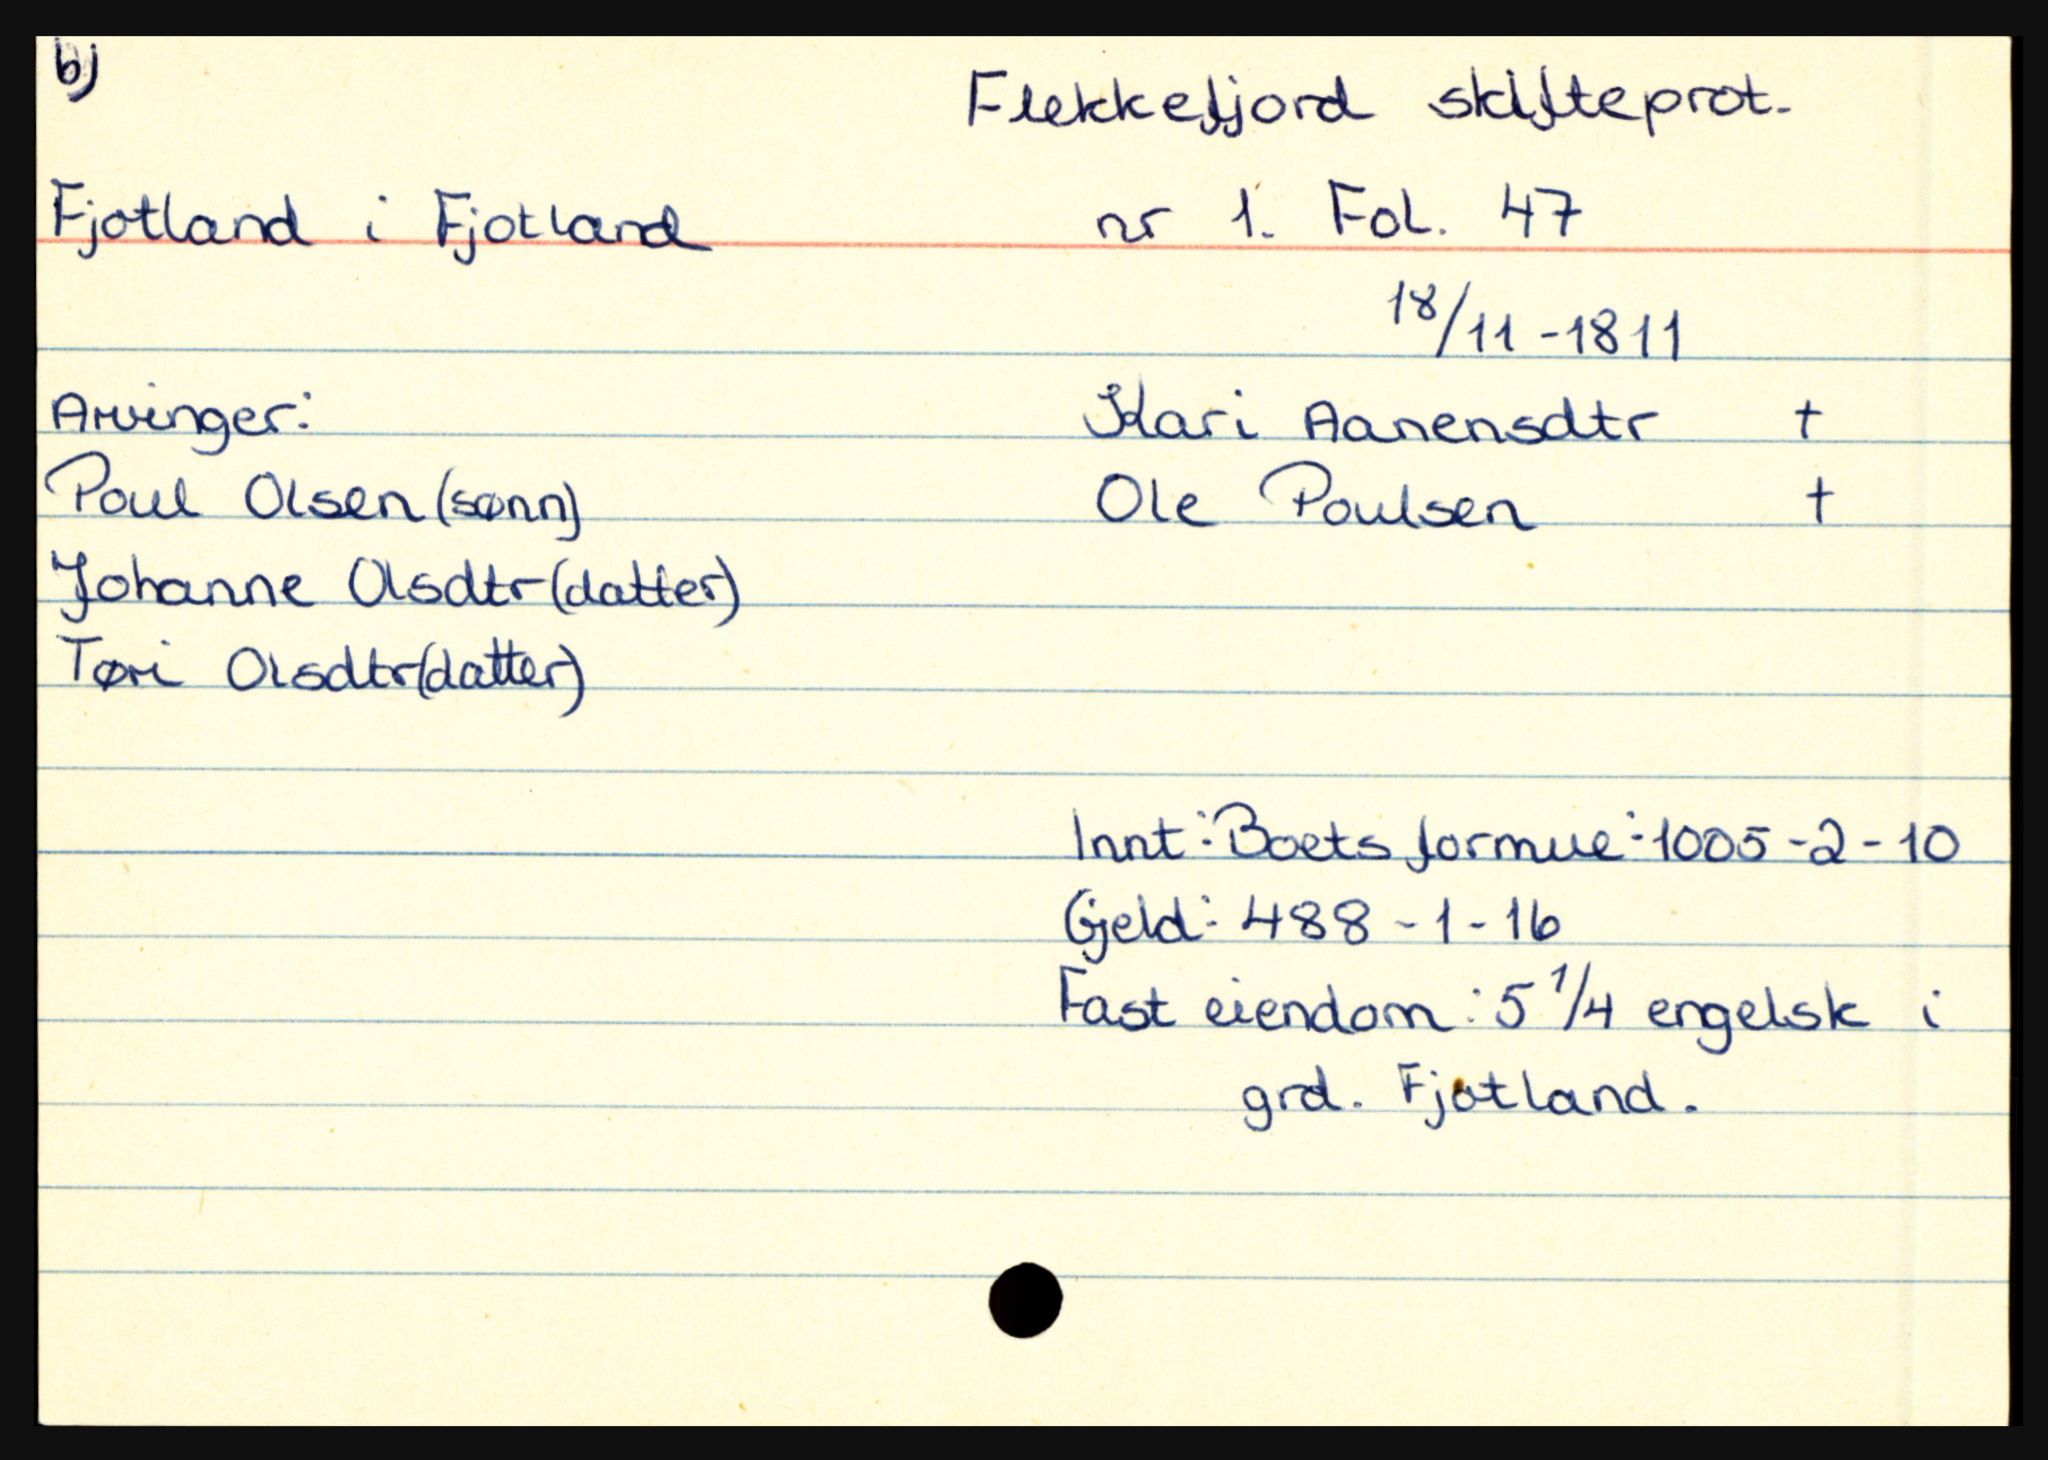 b)
Flekkefjord skifteprot.
Fjotland i Fjotland nr 1. Fol. 47
18/11-1811
Arvinger: Kari Aanensdtr †
Poul Olsen (sønn) Ole Poulsen †
Johanne Olsdtr (datter)
Tøri Olsdtr (datter)
Innt: Boets formue: 1005-2-10
Gjeld: 488-1-16
Fast eiendom: 5 1/4 engelsk i
grd. Fjotland.